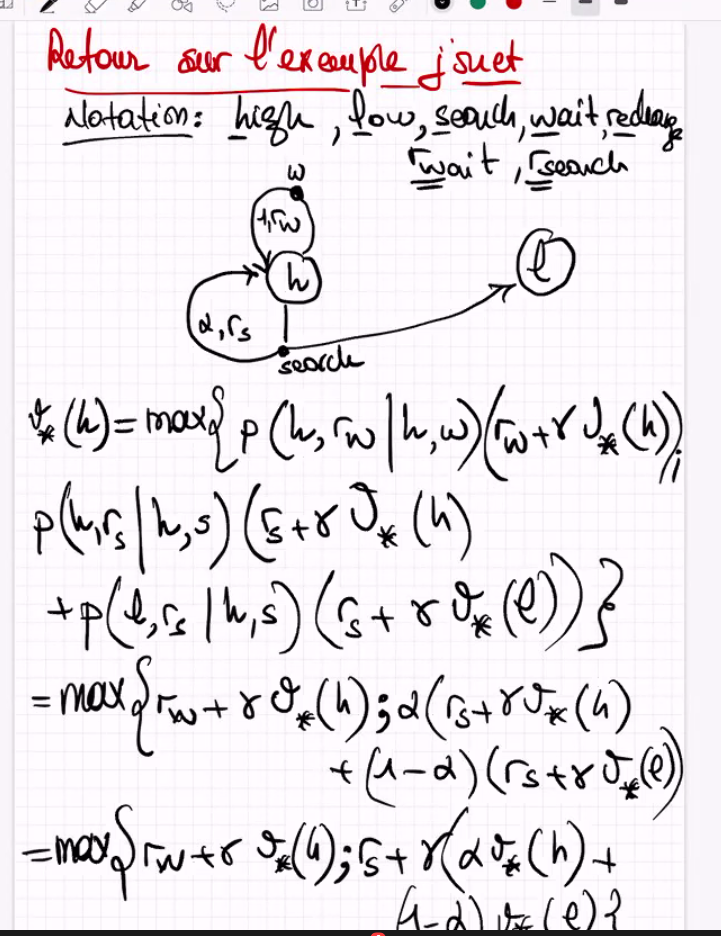 Retour sur l'exemple jouet
Notation: high, low, search, wait, recharge
rwait, rsearch
w
1, r_w
h
l
α, r_s
search
v_*(h) = max{ p(h, r_w | h, w)(r_w + γ v_*(h));
p(h, r_s | h, s)(r_s + γ v_*(h)
+ p(l, r_s | h, s)(r_s + γ v_*(l))}
= max{ r_w + γ v_*(h); α(r_s + γ v_*(h)
+ (1-α)(r_s + γ v_*(l))
= max{ r_w + γ v_*(h); r_s + γ(α v_*(h) +
(1-α) v_*(l)}